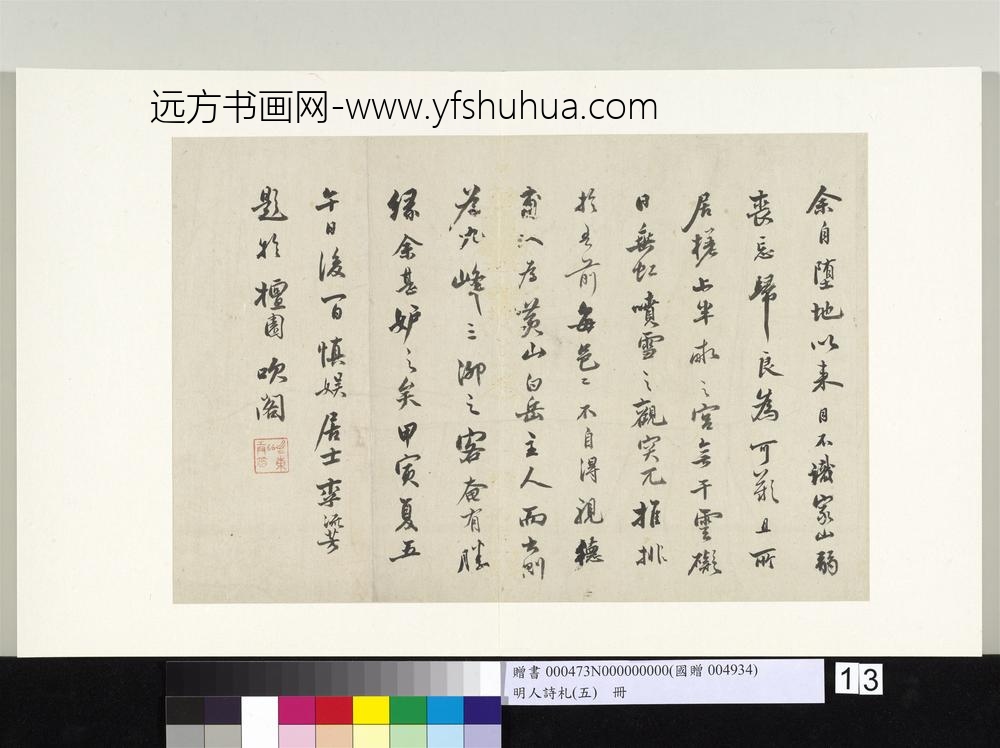 远方书画网-www.yfshuhua.com
余自墮地以來目不識家山弱
喪忘歸良為可歎且所
居槎上半畝之宮無干雲礙
日垂虹噴雪之觀突兀推排
於吾前每邑邑不自得視德
齋入為黃山白岳主人而出則
為九峰三泖之客奄有勝
緣余甚妒之矣甲寅夏五
午日後一日慎娛居士李流芳
題於檀園吹閣
贈書 000473N000000000(國贈 004934)
明人詩札(五) 冊
13